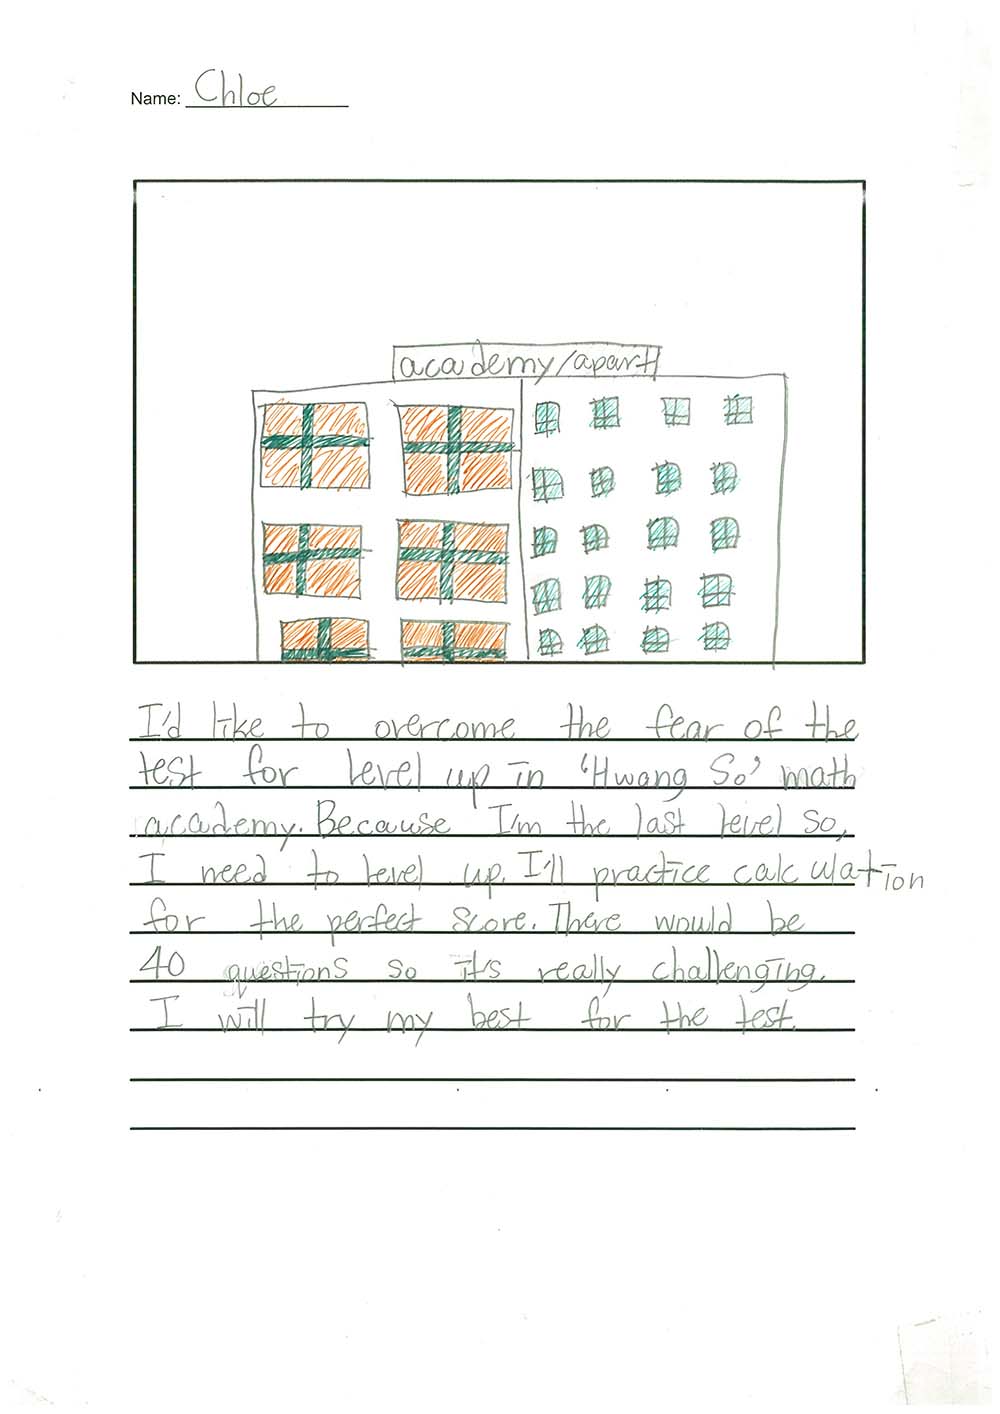 Name: Chloe
academy/apart
I'd like to overcome the fear of the
test for level up in 'Hwang So' math
academy. Because I'm the last level so,
I need to level up. I'll practice calculation
for the perfect score. There would be
40 questions so it's really challenging.
I will try my best for the test.